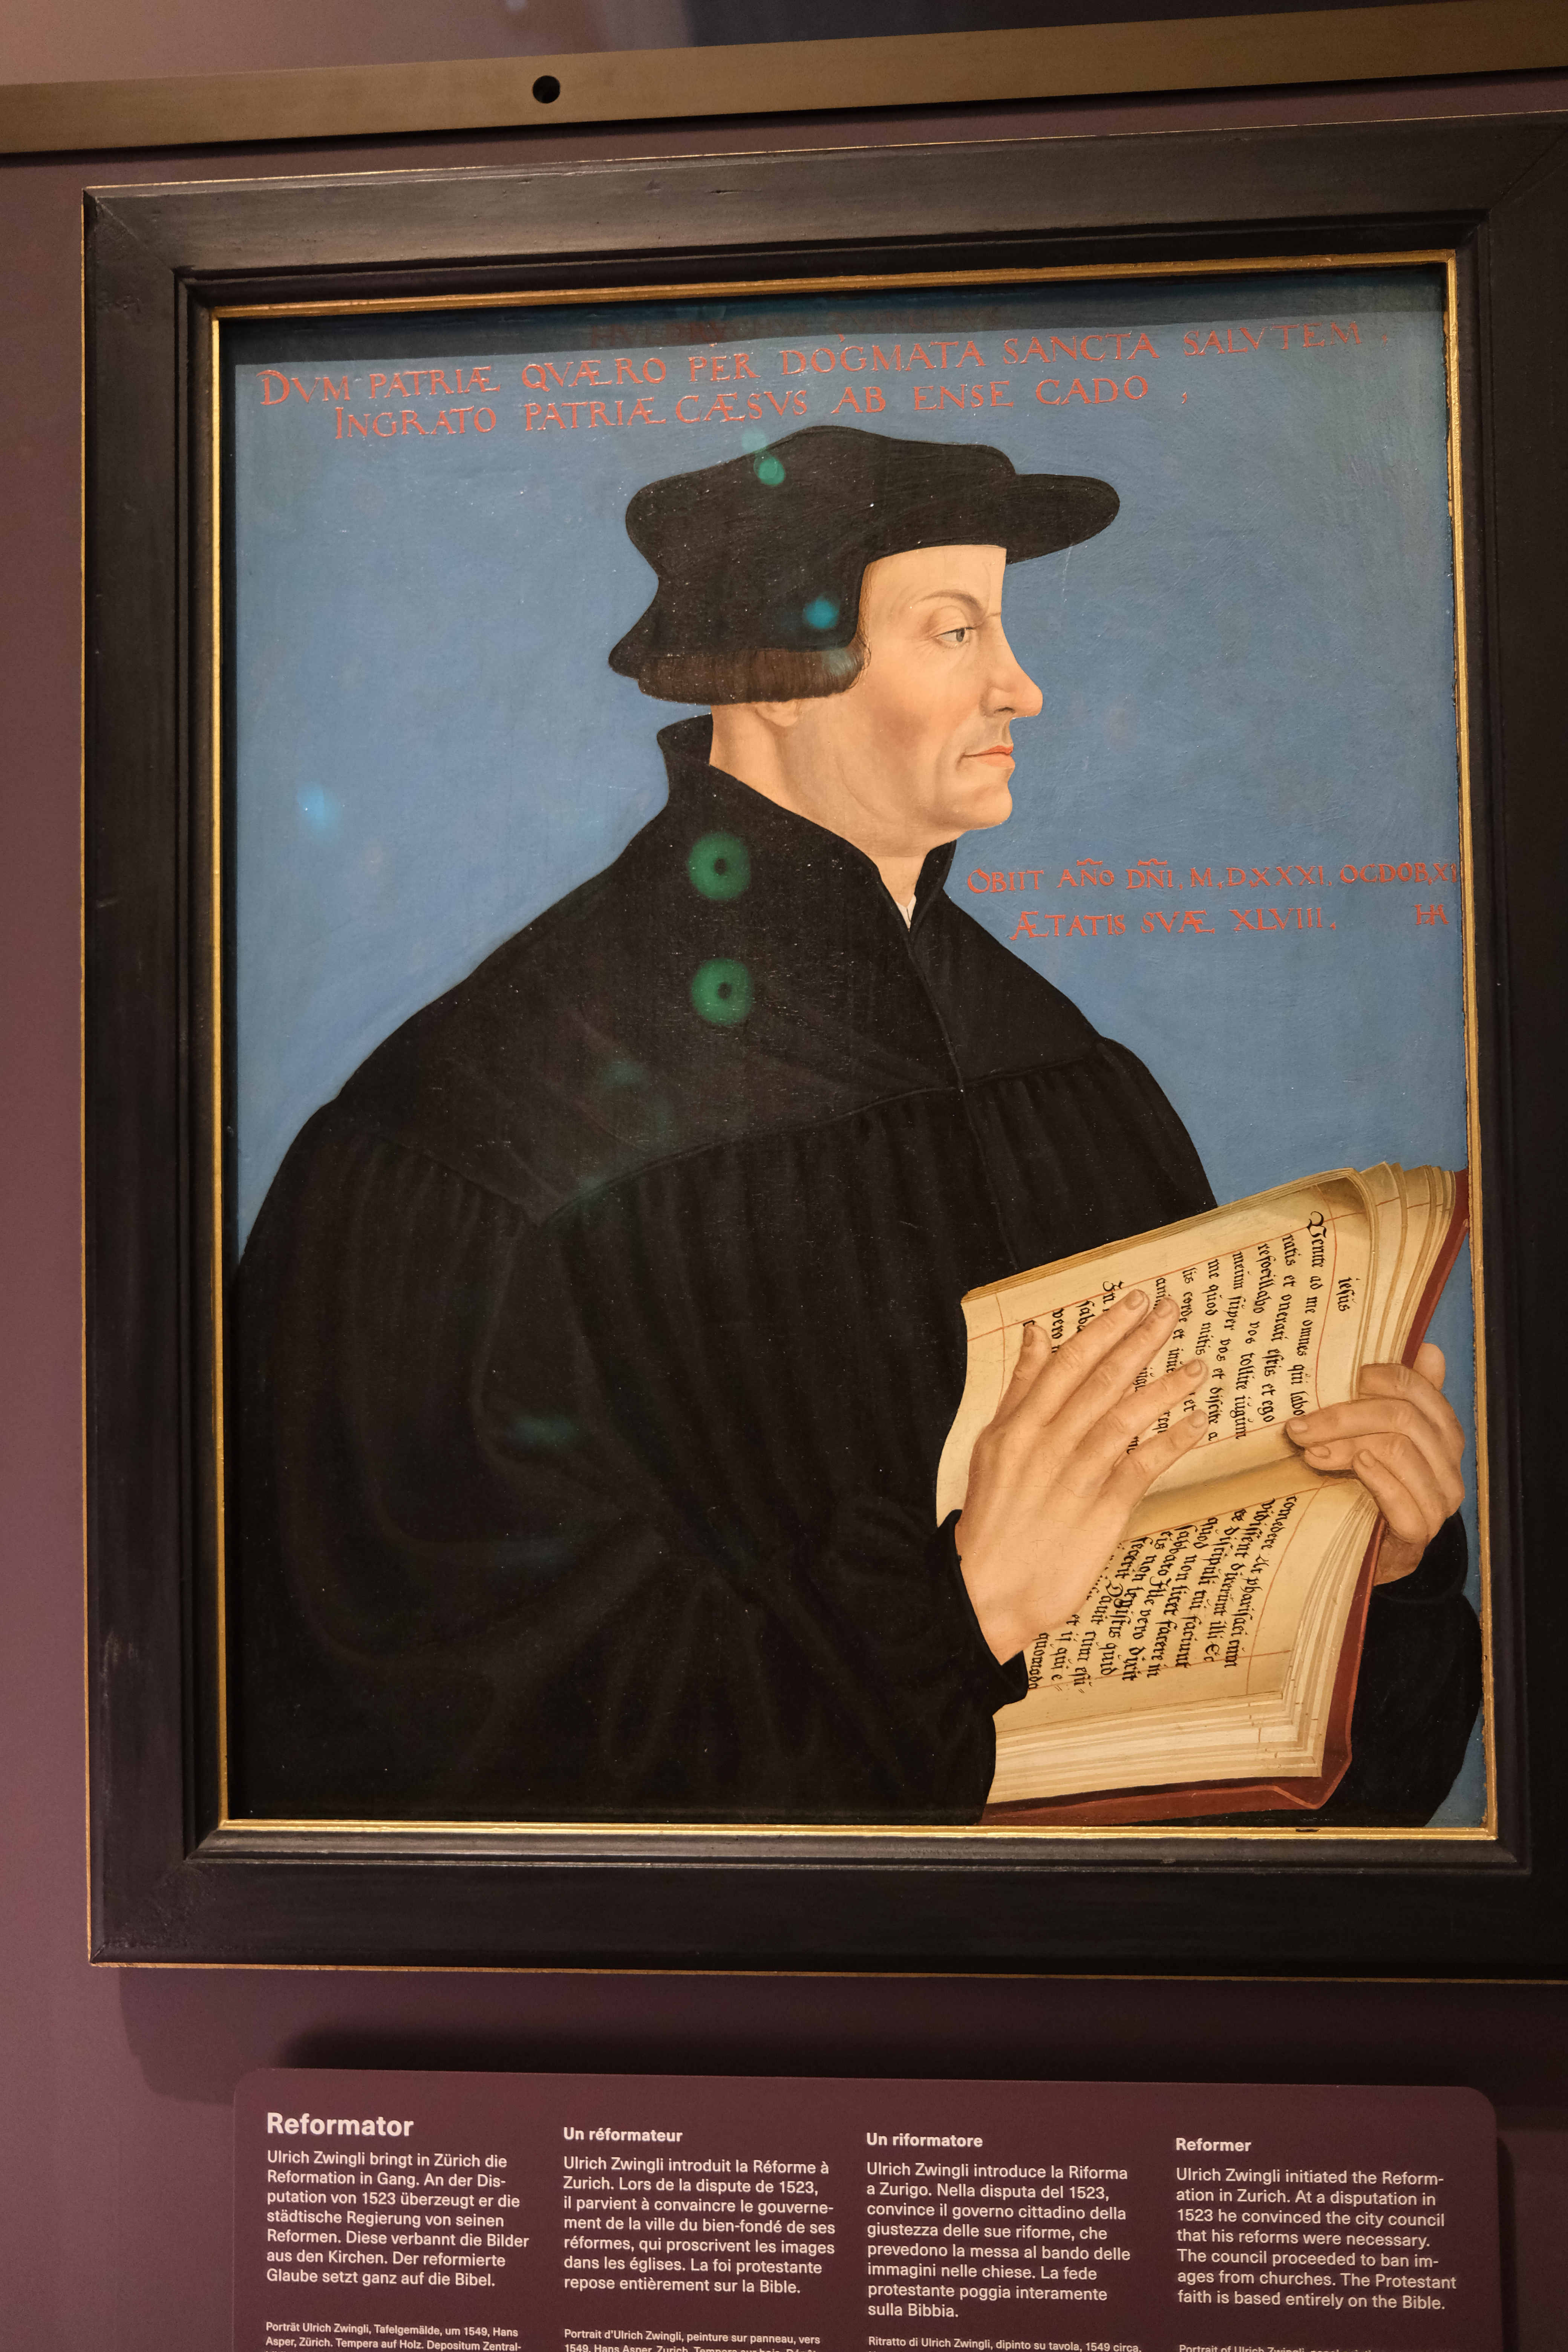 DVM PATRIÆ QVÆRO PER DOGMATA SANCTA SALVTEM,
INGRATO PATRIÆ CÆSVS AB ENSE CADO,
OBIIT AÑO DÑI, M,DXXXI, OCDOB,XI
ÆTATIS SVÆ XLVIII, HA
iesus
Venite ad me omnes qui labo
ratis et onerati estis et ego
refocillabo vos tollite iugum
meum super vos et discite a
me quod mitis et
lis corde et
In
vero
comedere Et pharisæi cum
vidissent dixerunt illi Ec
discipuli tui faciunt
quod non licet facere in
sabbato Ille vero dixit
eis non legistis quid
fecerit
et ii qui e-
quomodo
Reformator
Ulrich Zwingli bringt in Zürich die
Reformation in Gang. An der Dis-
putation von 1523 überzeugt er die
städtische Regierung von seinen
Reformen. Diese verbannt die Bilder
aus den Kirchen. Der reformierte
Glaube setzt ganz auf die Bibel.
Porträt Ulrich Zwingli, Tafelgemälde, um 1549, Hans
Asper, Zürich. Tempera auf Holz. Depositum Zentral-
Un réformateur
Ulrich Zwingli introduit la Réforme à
Zurich. Lors de la dispute de 1523,
il parvient à convaincre le gouverne-
ment de la ville du bien-fondé de ses
réformes, qui proscrivent les images
dans les églises. La foi protestante
repose entièrement sur la Bible.
Portrait d'Ulrich Zwingli, peinture sur panneau, vers
1549, Hans Asper, Zurich. Tempera sur bois.
Un riformatore
Ulrich Zwingli introduce la Riforma
a Zurigo. Nella disputa del 1523,
convince il governo cittadino della
giustezza delle sue riforme, che
prevedono la messa al bando delle
immagini nelle chiese. La fede
protestante poggia interamente
sulla Bibbia.
Ritratto di Ulrich Zwingli, dipinto su tavola, 1549 circa,
Reformer
Ulrich Zwingli initiated the Reform-
ation in Zurich. At a disputation in
1523 he convinced the city council
that his reforms were necessary.
The council proceeded to ban im-
ages from churches. The Protestant
faith is based entirely on the Bible.
Portrait of Ulrich Zwingli,